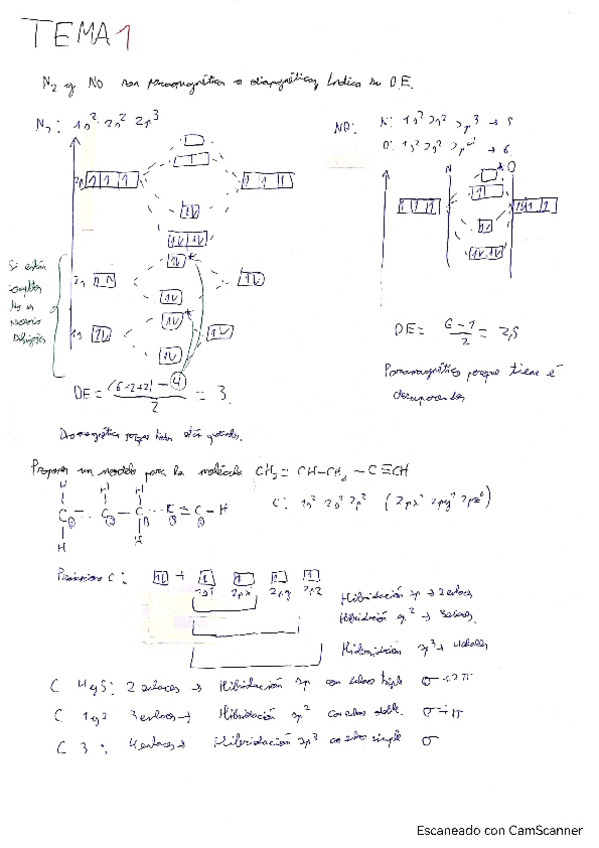 TEMA 1
N₂ y NO son paramagnéticos o diamagnéticos, Indica su D.E.
N₂: 1s² 2s² 2p³
NO:
N: 1s² 2s² 2p³ → 5
O: 1s² 2s² 2p⁴ → 6
N
O
2s
Si están
no es
necesario
dibujarlos
DE = (6-2+2) - 4 / 2 = 3
DE = 6-1 / 2 = 2,5
Diamagnética porque todos están
Paramagnético porque tiene é
desapareados
Proponer un modelo para la molécula CH₂ = CH-CH₂ - C ≡ CH
H H H
C₁ C₂ C₃ C₄ ≡ C₅ - H
H H
C: 1s² 2s² 2p² (2px¹ 2py¹ 2pz⁰)
C:
2s¹ 2px 2py 2pz
Hibridación sp → 2 enlaces
Hibridación sp² → 3 enlaces
Hibridación sp³ → 4 enlaces
C 4 y 5: 2 enlaces → Hibridación sp con enlace triple σ+2π
C 1 y 2 3 enlaces → Hibridación sp² con enlace doble. σ+π
C 3 : 4 enlaces → Hibridación sp³ con enlace simple σ
Escaneado con CamScanner